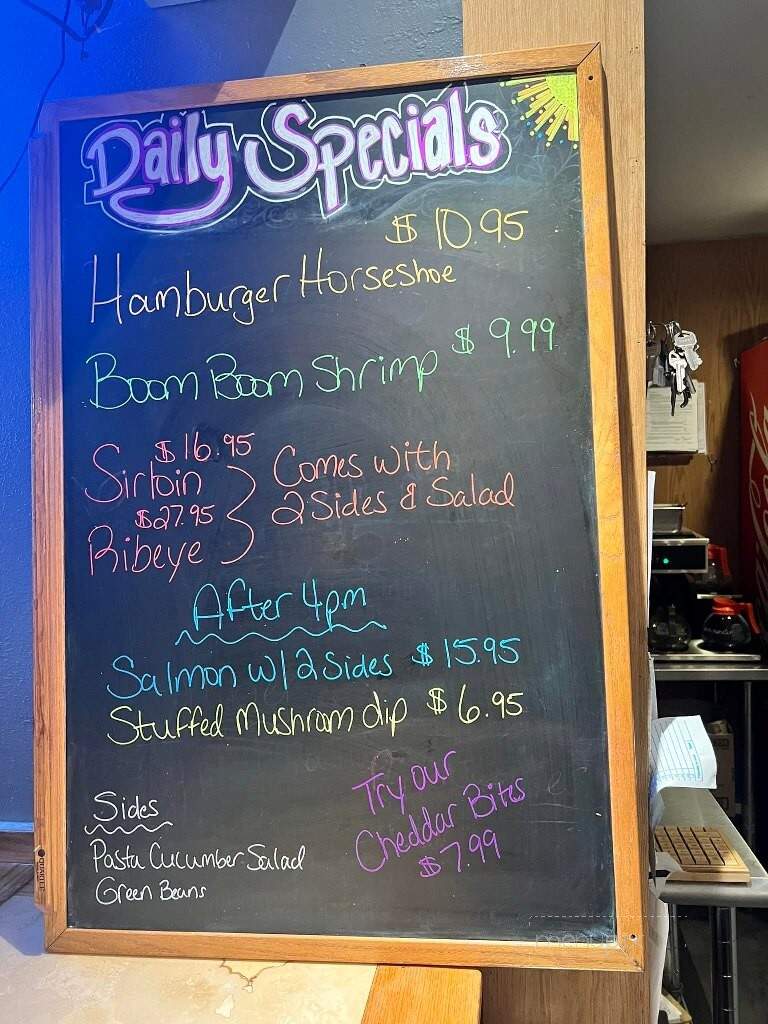 Daily Specials
$10.95
Hamburger Horseshoe
Boom Boom Shrimp $9.99
$16.95
Sirloin } Comes with
$27.95 2 Sides & Salad
Ribeye
After 4pm
Salmon w/ 2 Sides $15.95
Stuffed Mushroom dip $6.95
Try our
Cheddar Bites
$7.99
Sides
Pasta Cucumber Salad
Green Beans
QUARTET